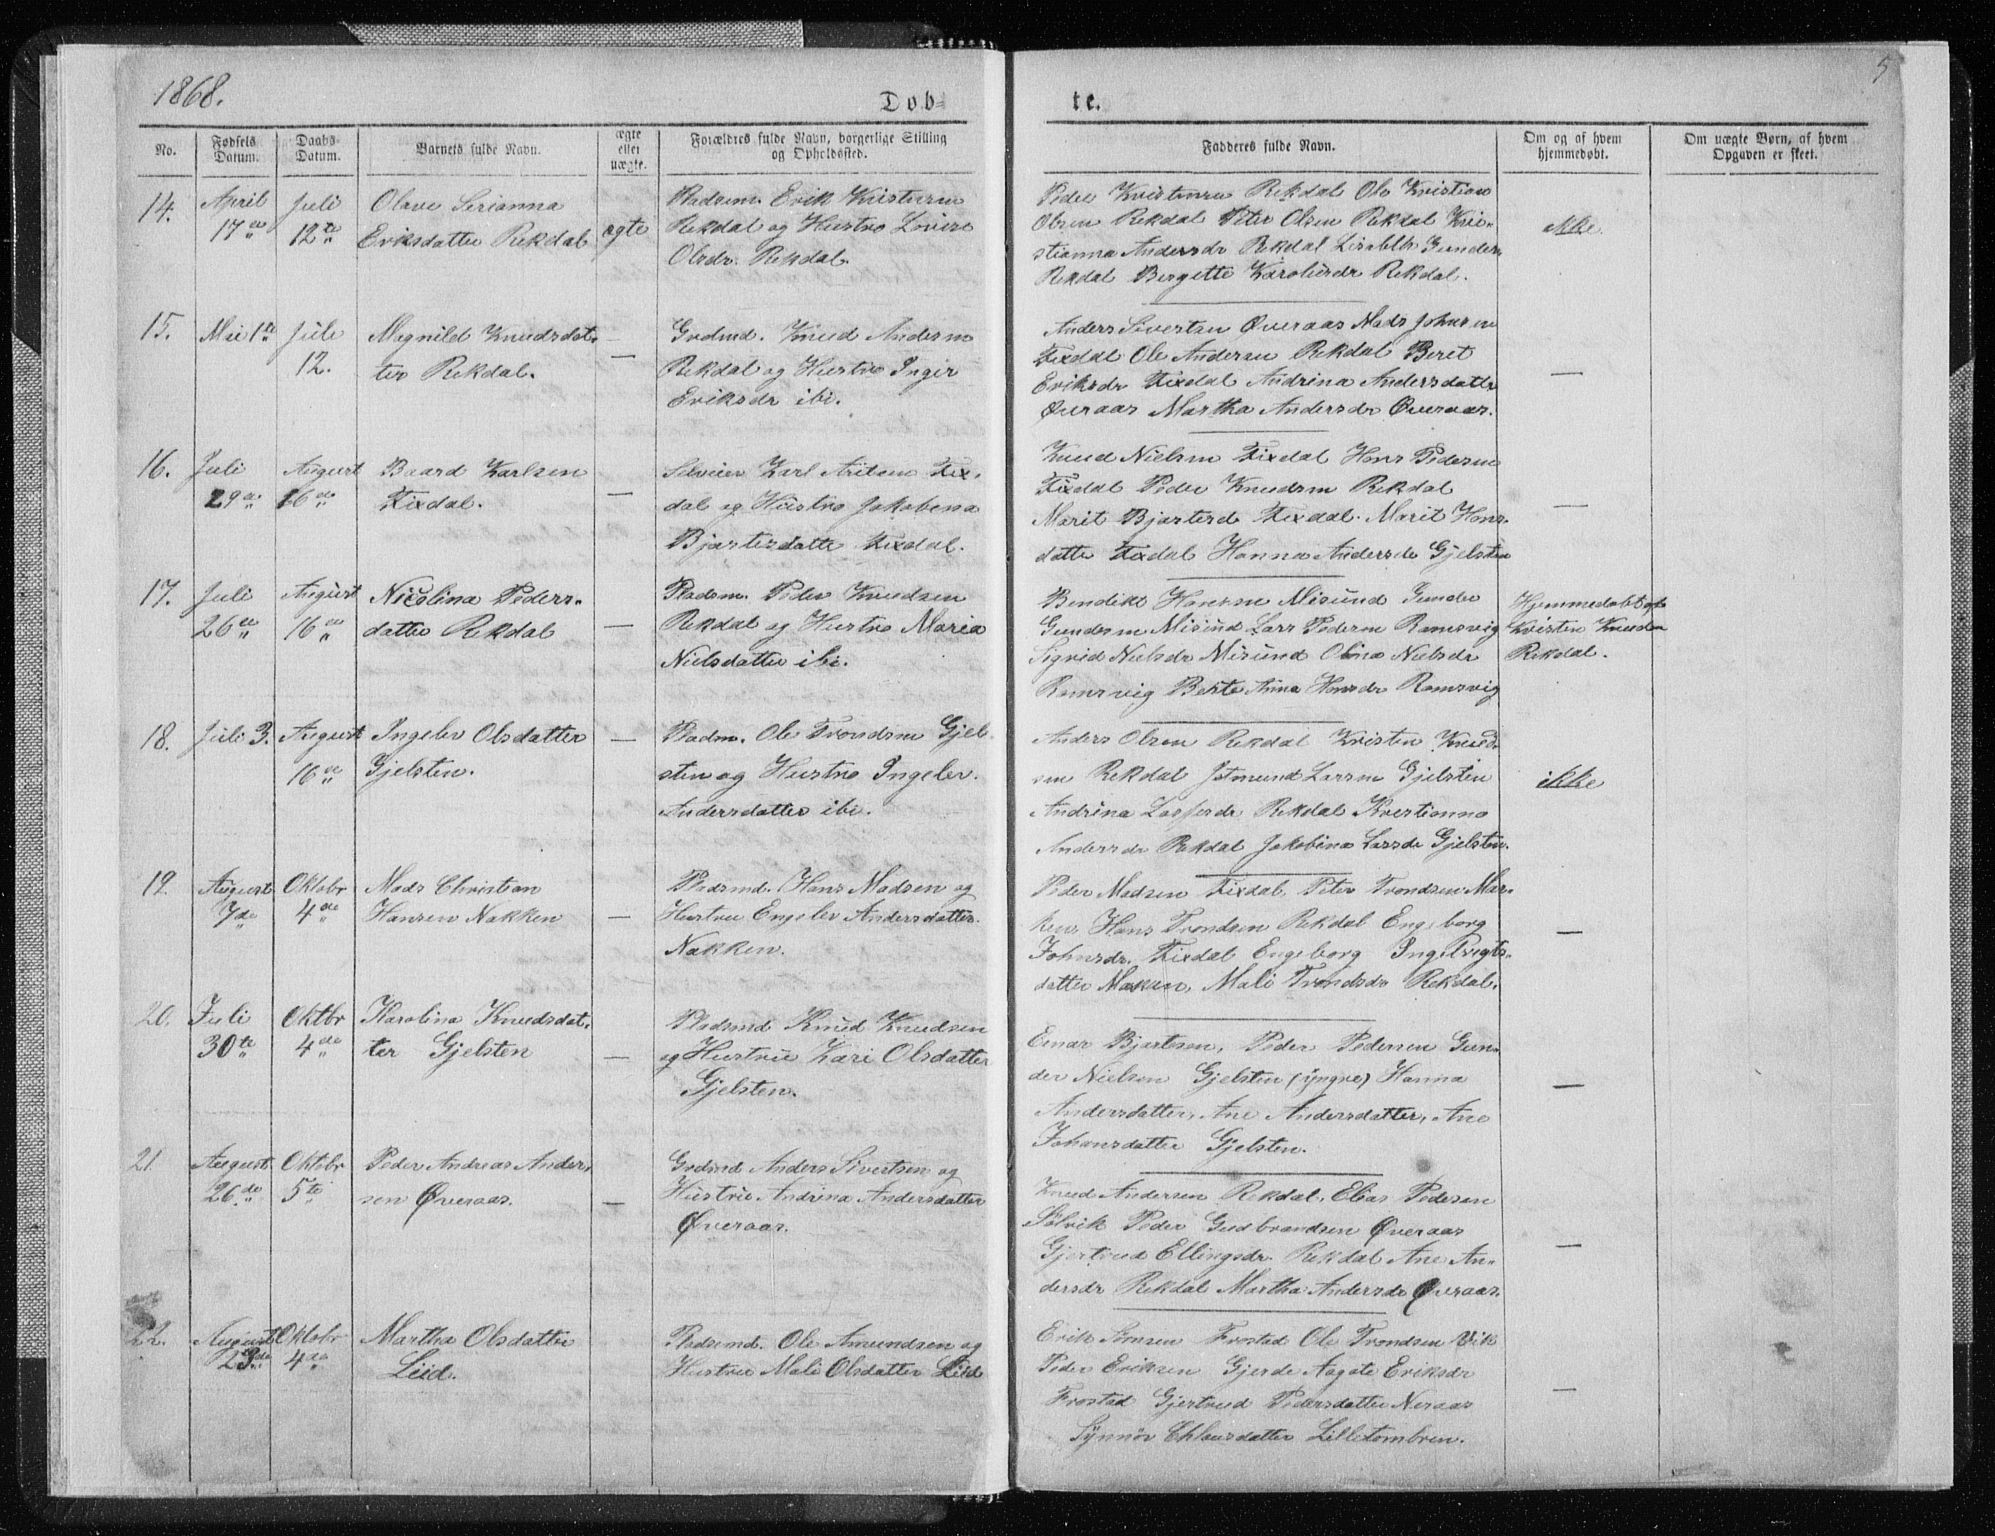 1868.
Døb-
te.
5
No.
Fødsels Datum.
Daabs-Datum.
Barnets fulde Navn.
ægte eller uægte.
Forældres fulde Navn, borgerlige Stilling og Opholdssted.
Fadderes fulde Navn.
Om og af hvem hjemmedøbt.
Om uægte Børn, af hvem Opgaven er skeet.
14.
April
17de
Juli
12te
Olave Serianna
Eriksdatter Rekdal
ægte
Pladsm. Erik Kristensen
Rekdal og Hustro Lovise
Olsdr. Rekdal.
Peder Kristensen Rekdal Ole Kristian
Olsen Rekdal Peter Olsen Rekdal Kri-
stianna Andersdr Rekdal Lisabeth Gundersdr
Rekdal Bergitte Karolusdr Rekdal.
ikke
15.
Mai 1ste
Juli
12.
Magnild Knudsdat-
ter Rekdal.
—
Grdmd. Knud Andersen
Rekdal og Hustro Inger
Eriksdr ibi.
Anders Sivertsen Øveraas Mads Johnsen
Fixdal Ole Andersen Rekdal Beret
Eriksdr Fixdal Andrina Andersdatter
Øveraas Martha Andersdr Øveraas.
—
16.
Juli
29de
August
16de
Baard Karlsen
Fixdal.
—
Selveier Karl Aritsen Fix-
dal og Hustro Jakobina
Bjartesdatter Fixdal.
Knud Nielsen Fixdal Hans Pedersen
Fixdal Peder Knudsen Rekdal
Marit Bjartesd Fixdal. Marit Hans-
datter Fixdal Hanna Andersdr Gjelsten
—
17.
Juli
26de
August
16de
Nicolina Peders-
datter Rekdal
—
Pladsm. Peder Knudsen
Rekdal og Hustro Maria
Nielsdatter ibi.
Bendikt Hansen Misund Gunder
Gundersen Misund Lars Pedersen Ramsvig
Sigrid Nielsdr Misund Olina Nielsdr
Ramsvig Berte Anna Hansdr Ramsvig
Hjemmedøbt af
Kristen Knudsen
Rekdal.
18.
Juli 3.
August
16de
Ingelev Olsdatter
Gjelsten.
—
Pladsm. Ole Trondsen Gjel-
sten og Hustro Ingelev
Andersdatter ibi.
Anders Olsen Rekdal Kristen Knud-
sen Rekdal Jetmund Larsen Gjelsten
Andrina Lassesdr Rekdal Kristianna
Andersdr Rekdal Jakobina Larsdr Gjelsten.
ikke
19.
August
7de
Oktobr
4de
Mads Christian
Hansen Nakken
—
Pladsmd. Hans Madsen og
Hustru Engelev Andersdatter
Nakken.
Peder Madsen Fixdal, Peter Trondsen Mar-
ken Hans Trondsen Rekdal Engeborg
Johnsdr. Fixdal Engeborg Ingebrigts-
datter Marken, Mali Trondsdr Rekdal.
—
20.
Juli
30te
Oktbr
4de
Karolina Knudsdat-
ter Gjelsten
—
Pladsmd Knud Knudsen
og Hustru Kari Olsdatter
Gjelsten.
Einar Bjartesen, Peder Pedersen Gun-
der Nielsen Gjelsten (yngre) Hanna
Andersdatter, Ane Andersdatter, Ane
Johansdatter Gjelsten.
—
21.
August
26de
Oktobr
5te
Peder Andreas Ander-
sen Øveraas.
—
Grdmd Anders Sivertsen og
Hustru Andrina Andersdatter
Øveraas.
Knud Andersen Rekdal, Elias Pedersen
Sølvik Peder Gudbrandsen Øveraas
Gjertrud Ellingsdr. Rekdal Ane An-
dersdr Rekdal Martha Andersdr Øveraas.
—
22.
August
23de
Oktobr
4de
Martha Olsdatter
Liid.
Pladsmd. Ole Amundsen og
Hustru Mali Olsdatter Liid
Erik Simsen Frostad Ole Trondsen Vik
Peder Eriksen Gjerde Aagate Eriksdr
Frostad Gjertrud Pedersdatter Neraas
Synnøv Chlausdatter Lilletombren.
—